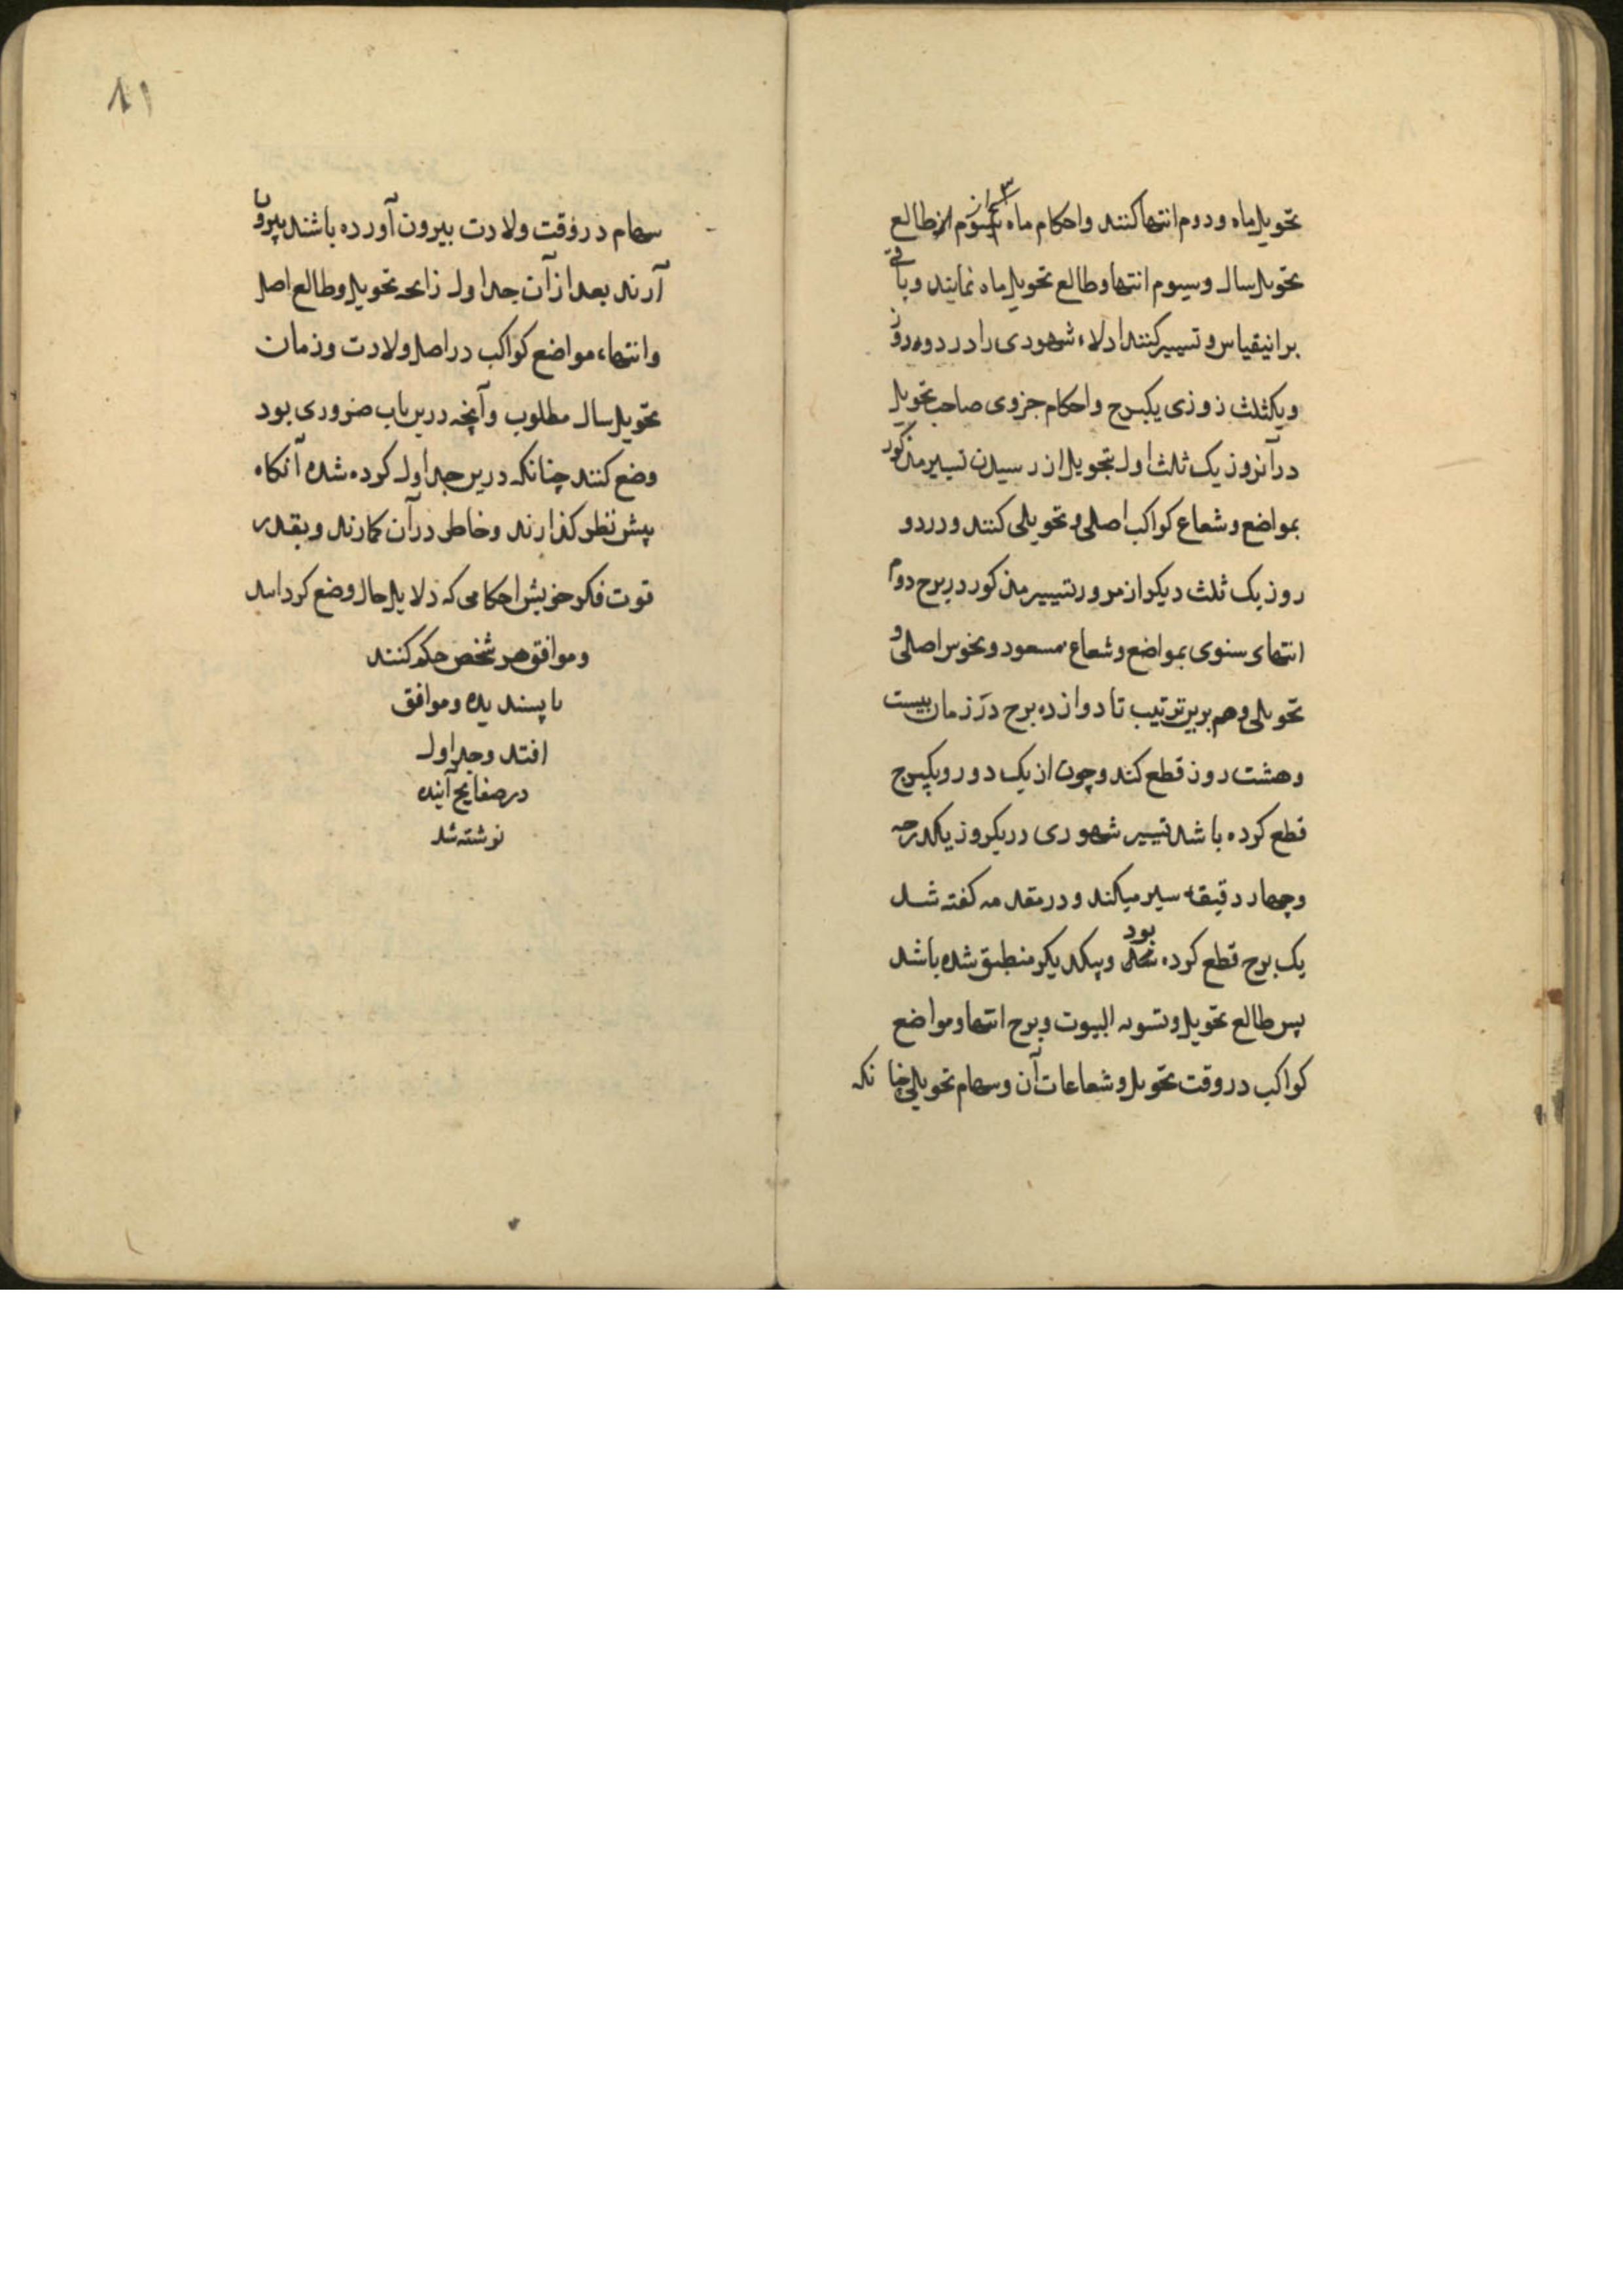 تحویل ماه و دوم انتها کنند و احکام ماه سیوم از طالع
تحویل سال و سیوم انتها و طالع تحویل ماه نمایند و باقی
برانیقیاس و تسییر کنند ادلاء شهودی را در دو روز
و یکثلث روزی یکبرج و احکام جزوی صاحب تحویل
در آنروز یک ثلث اول بتحویل از رسیدن تسییر مذکور
بمواضع و شعاع کواکب اصلی و تحویلی کنند و در دو
روز یک ثلث دیکر از مرور تسییر مذکور در برج دوم
انتهای سنوی بمواضع و شعاع مسعود و نحوس اصلی و
تحویلی و هم برین ترتیب تا دوازده برج در زمان بیست
و هشت روز قطع کند و چون از یک دور و یکبرج
قطع کرده باشد تسییر شهوری در یکروز یکدرجه
و چهار دقیقه سیر میکند و در مقدمه کفته شد
یک برج قطع کرده بود و بیکدیکر منطبق شده باشد
پس طالع تحویل و تسویه البیوت و برج انتها و مواضع
کواکب در وقت تحویل و شعاعات آن و سهام تحویلی چنانکه
۸۱
سهام در وقت ولادت بیرون آورده باشند بیرون
آرند بعد از آن جداول زایجه تحویل و طالع اصل
و انتهاء مواضع کواکب در اصل ولادت و زمان
تحویل سال مطلوب و آنچه درین باب ضروری بود
وضع کنند چنانکه درین جداول کرده شده آنکاه
پیش نظر کذارند و خاطر در آن کمارند و بقدر
قوت فکر خویش احکامی که دلایل حال وضع کرد اسد
و موافق هر شخص حکم کنند
تا پسندیده و موافق
افتد و جداول
در صفایح آینده
نوشته شد